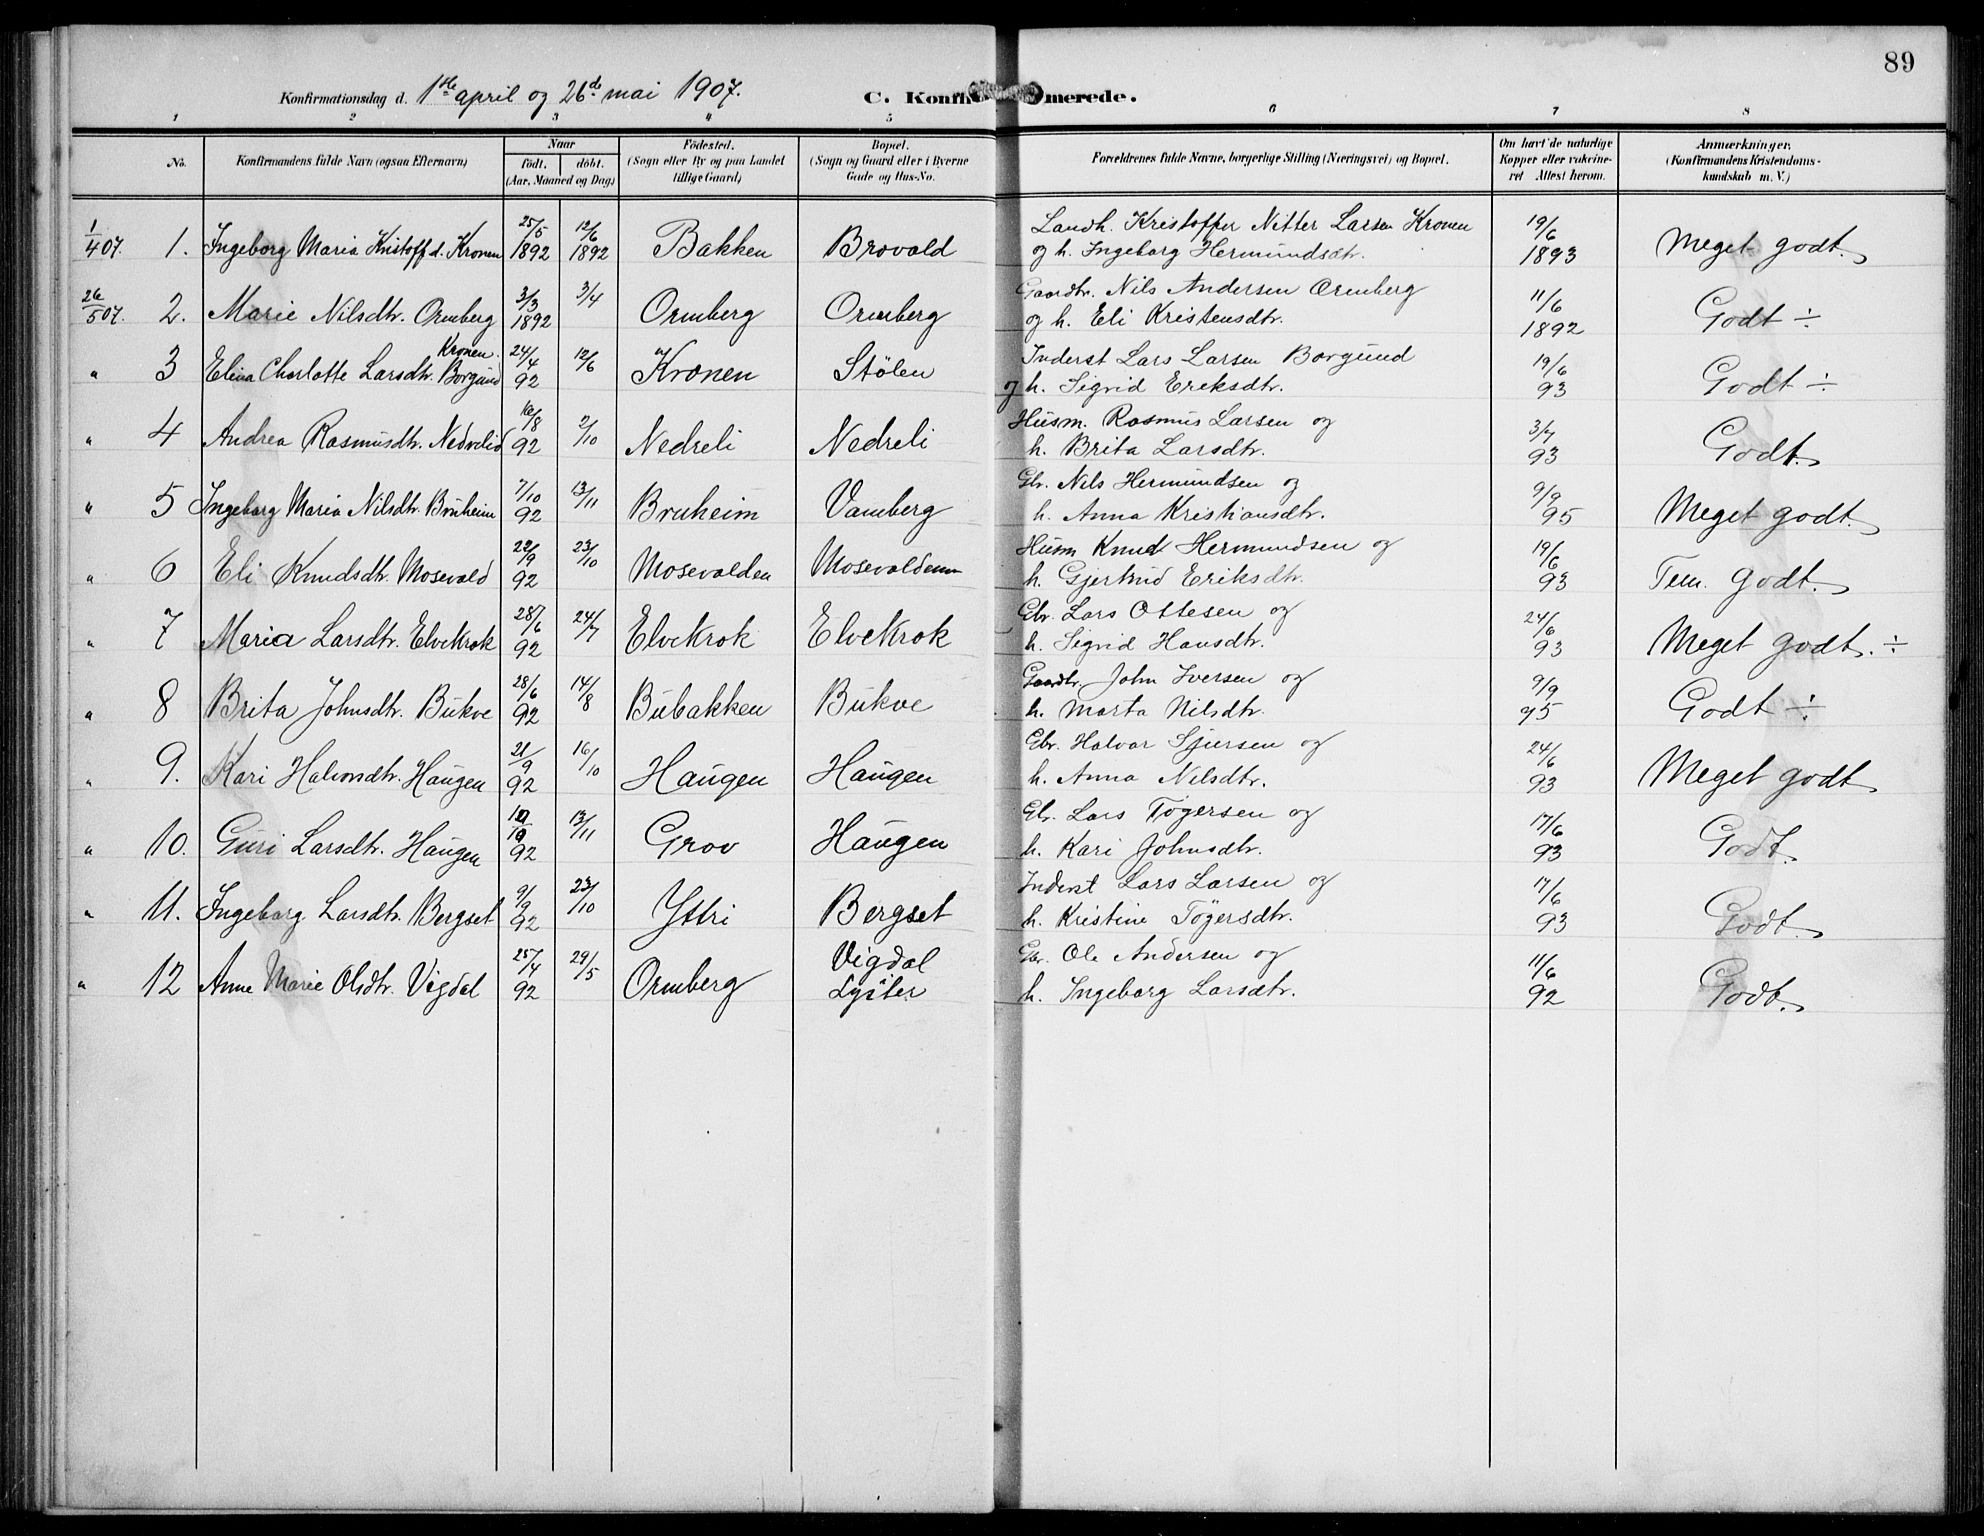 89
Konfirmationsdag d. 1ste april og 26de mai 1907. C. Konfirmerede.
1 2 3 4 5 6 7 8
No. Konfirmandens fulde Navn (ogsaa Efternavn) Naar født. døbt. (Aar, Maaned og Dag) Fødested. (Sogn eller By og paa Landet tillige Gaard) Bopæl. (Sogn og Gaard eller i Byerne Gade og Hus-No. Forældrenes fulde Navne, borgerlige Stilling (Næringsvei) og Bopæl. Om havt de naturlige Kopper eller vakcineret Attest herom. Anmærkninger, (Konfirmandens Kristendomskundskab m. V.)
1/4 07. 1. Ingeborg Maria Kristoff.d. Kronen 25/5 1892 12/6 1892 Bakken Brovald Landh. Kristoffer Nitter Larsen Kronen og h. Ingeborg Hermundsdtr. 19/6 1893 Meget godt.
26/5 07. 2. Marie Nilsdtr. Ormberg 3/3 1892 3/4 Ormberg Ormberg Gaardbr. Nils Andersen Ormberg og h. Eli Kristensdtr. 11/6 1892 Godt ÷
" 3 Elina Charlotte Larsdtr. Kronen. Borgund 24/4 92 12/6 Kronen Stølen Inderst Lars Larsen Borgund og h. Sigrid Eriksdtr. 19/6 93 Godt ÷
" 4 Andrea Rasmusdtr. Nedrelid 16/8 92 2/10 Nedreli Nedreli Husm. Rasmus Larsen og h. Brita Larsdtr. 3/7 93 Godt.
" 5 Ingeborg Maria Nilsdtr. Bruheim 7/10 92 13/11 Bruheim Vamberg Gbr. Nils Hermundsen og h. Anna Kristiansdtr. 9/9 95 Meget godt.
" 6 Eli Knudsdtr. Mosevald 22/9 92 23/10 Mosevalden Mosevalden Husm Knud Hermundsen og h. Gjertrud Eriksdtr. 19/6 93 Tem. godt.
" 7 Maria Larsdtr. Elvekrok 28/6 92 24/7 Elvekrok Elvekrok Gbr. Lars Ottesen og h. Sigrid Hansdtr. 24/6 93 Meget godt. ÷
" 8 Brita Johnsdtr. Bukve 28/6 92 14/8 Bubakken Bukve Gaardbr. John Iversen og h. Marta Nilsdtr. 9/9 95 Godt ÷
" 9. Kari Halvorsdtr. Haugen 21/9 92 16/10 Haugen Haugen Gbr. Halvar Sjursen og h. Anna Nilsdtr. 24/6 93 Meget godt
" 10. Guri Larsdtr. Haugen 92 13/11 Grov Haugen Gbr. Lars Tøgersen og h. Kari Johnsdtr. 17/6 93 Godt.
" 11. Ingeborg Larsdtr. Bergset 9/9 92 23/10 Yttri Bergset Inderst Lars Larsen og h. Kristine Tøgersdtr. 17/6 93 Godt.
" 12 Anne Marie Olsdtr. Vigdal 25/4 92 29/5 Ormberg Vigdal Lyster Gbr. Ole Andersen og h. Ingeborg Larsdtr. 11/6 92 Godt.